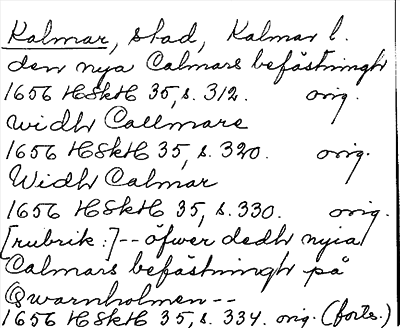 Kalmar, stad, Kalmar l.
den nya Calmars befästningh
1656 HSkH 35, s. 312. orig.
widh Callmare
1656 HSkH 35, s. 320. orig.
Widh Calmar
1656 HSkH 35, s. 330. orig.
[rubrik:] -- öfwer dedh nyia
Calmars befästningh på
Qwarnholmen --
1656 HSkH 35, s. 334. orig. (forts.)